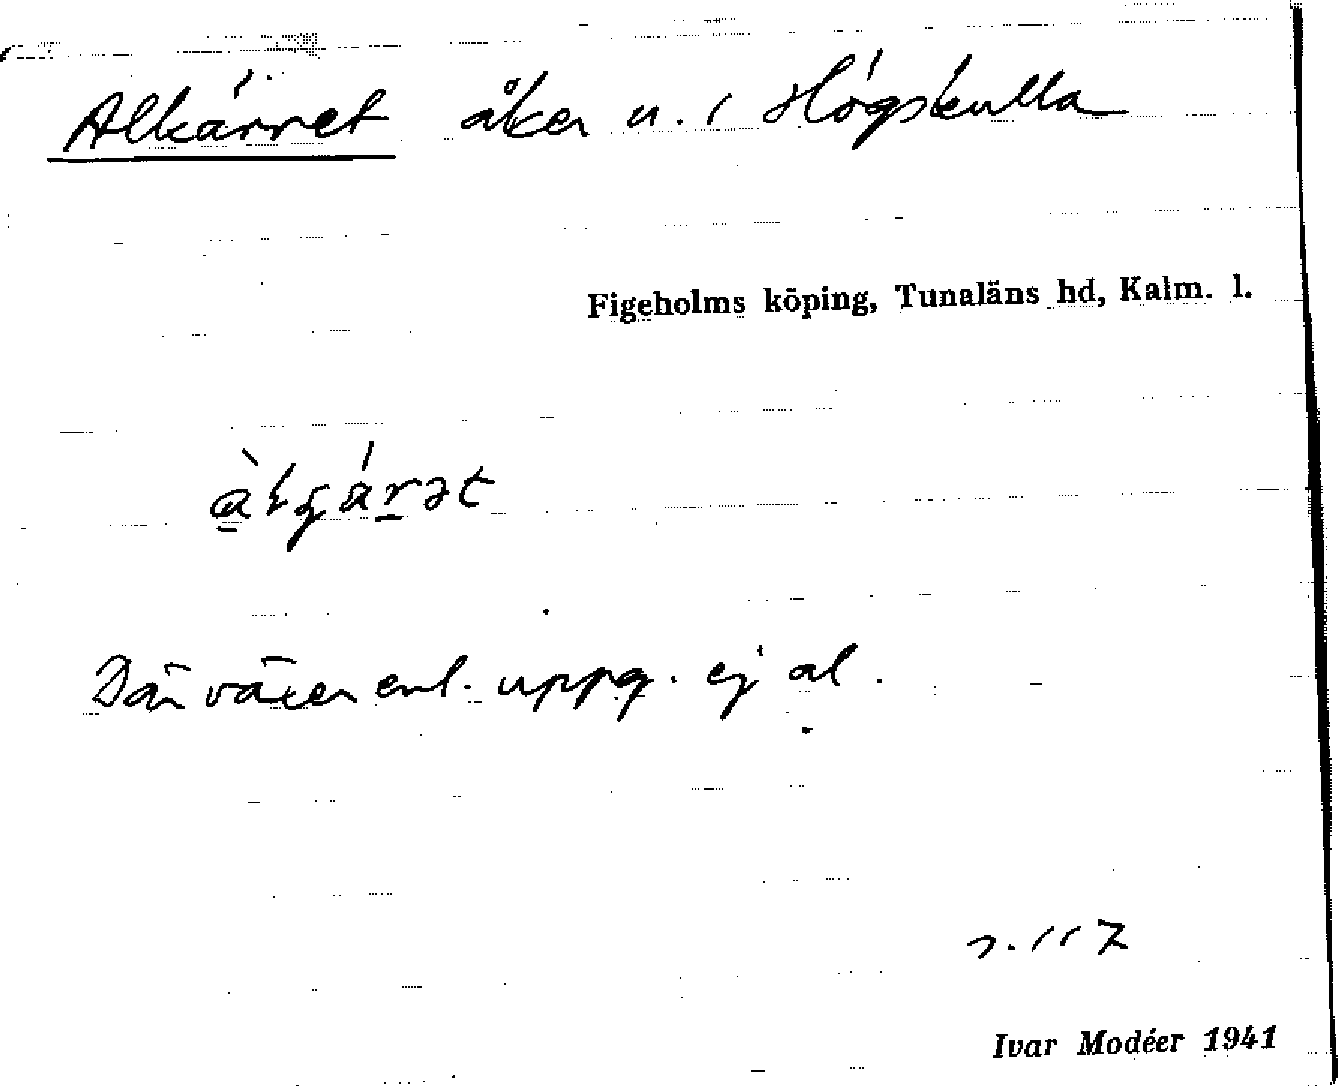 Alkärret åker u. / Högskulla
Figeholms köping, Tunaläns hd, Kalm. l.
Där växer enl. uppg. ej al.
Ivar Modéer 1941